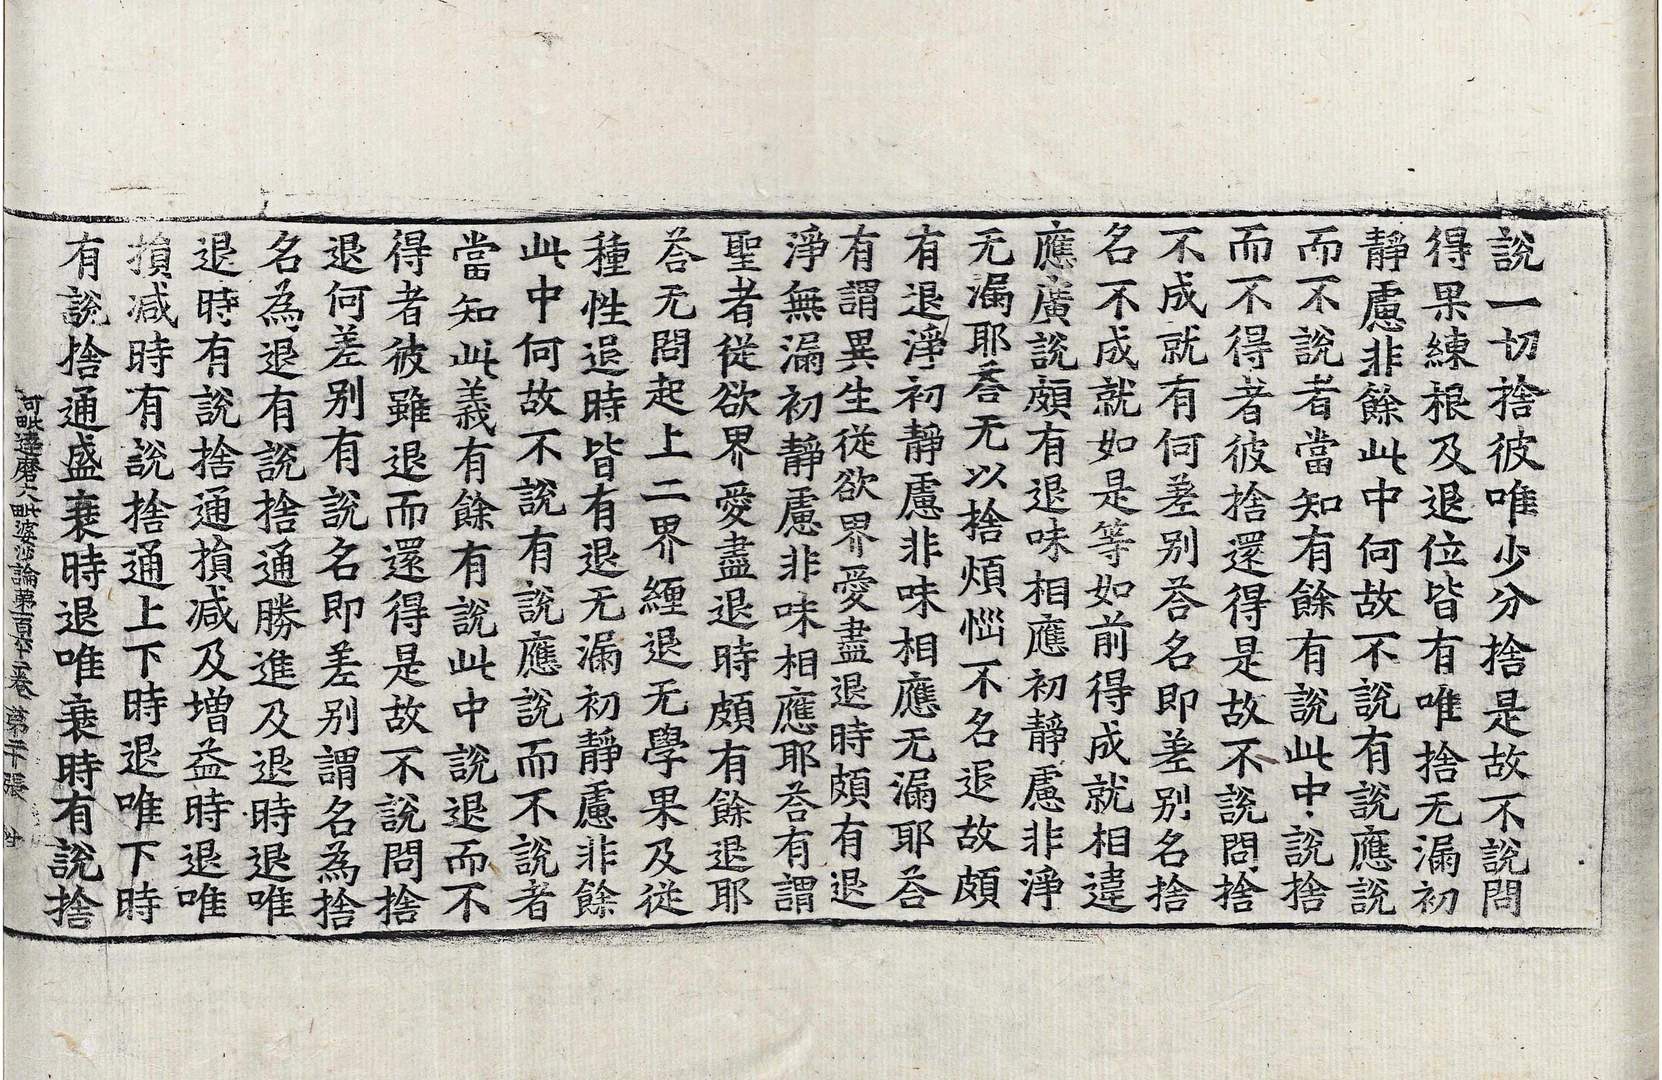 說一切捨彼唯少分捨是故不說問
得果練根及退位皆有唯捨无漏初
靜慮非餘此中何故不說有說應說
而不說者當知有餘有說此中說捨
而不得者彼捨還得是故不說問捨
不成就有何差別荅名即差別名捨
名不成就如是等如前得成就相違
應廣說頗有退味相應初靜慮非淨
无漏耶荅无以捨煩惱不名退故頗
有退淨初靜慮非味相應无漏耶荅
有謂異生從欲界愛盡退時頗有退
淨無漏初靜慮非味相應耶荅有謂
聖者從欲界愛盡退時頗有餘退耶
荅无問起上二界纏退无學果及從
種性退時皆有退无漏初靜慮非餘
此中何故不說有說應說而不說者
當知此義有餘有說此中說退而不
得者彼雖退而還得是故不說問捨
退何差別有說名即差別謂名為捨
名為退有說捨通勝進及退時退唯
退時有說捨通損减及增益時退唯
損减時有說捨通上下時退唯下時
有說捨通盛衰時退唯衰時有說捨
阿毗達磨大毗婆沙論第一百六十二卷 第二十張